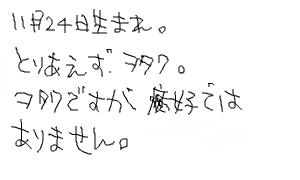 11月24日生まれ。
とりあえず.ヲタク。
ヲタクですが 好では
ありません。